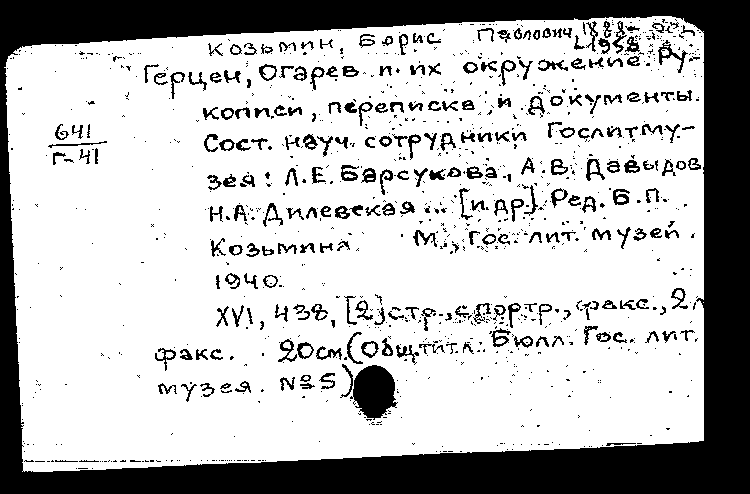 Козьмин, Борис Павлович, 1888-
1958
Герцен, Огарев и их окружение. Ру-
кописи, переписка и документы.
641
Г-41
Сост. науч. сотрудники Гослитму-
зея: Л.Е. Барсукова, А.В. Давыдов,
Н.А. Дилевская... [и др]. Ред. Б.П.
Козьмина. М., Гос. лит. музей.
1940.
XVI, 438, [2] стр., с портр., факс., 2 л
факс. 20см. (Общ. тит. л.: Бюлл. Гос. лит.
музея. №5)